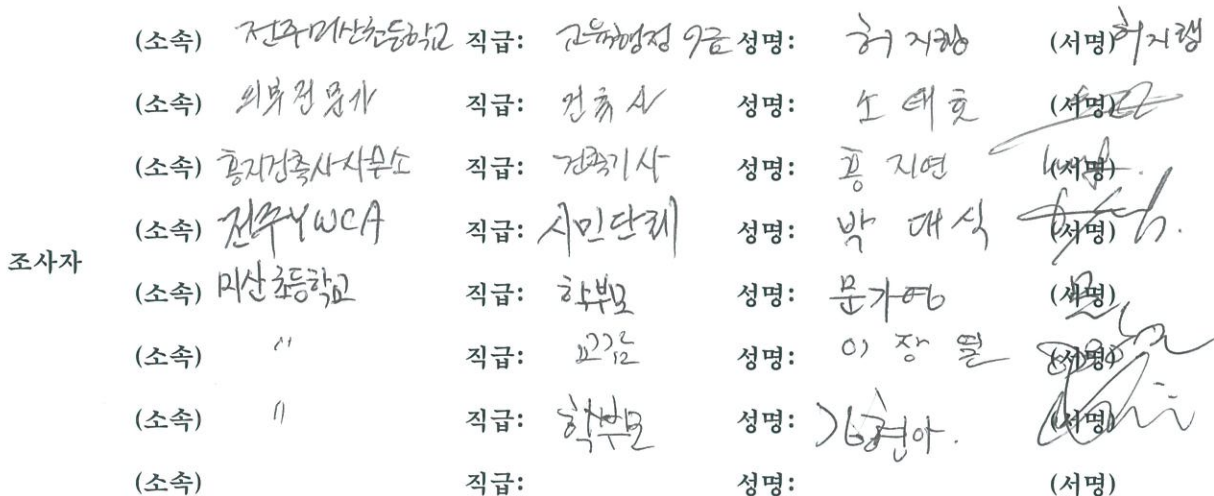 (소속) 전주미산초등학교 직급: 교육행정 9급 성명: 허지행 (서명) 허지행
(소속) 외부전문가 직급: 건축사 성명: 소태호 (서명)
(소속) 홍지건축사사무소 직급: 건축기사 성명: 홍지연 (서명)
(소속) 전주YWCA 직급: 시민단체 성명: 박대식 (서명)
조사자
(소속) 미산초등학교 직급: 학부모 성명: 문가영 (서명)
(소속) " 직급: 교감 성명: 이장열 (서명)
(소속) " 직급: 학부모 성명: 김현아. (서명)
(소속) 직급: 성명: (서명)